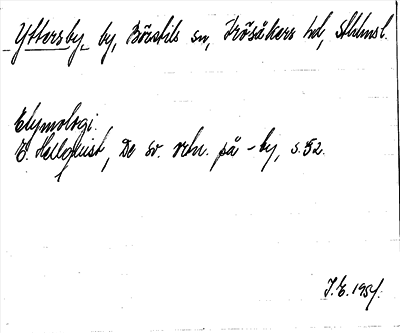 Yttersby, by, Börstils sn, Frösåkers hd, Sthlmsl.
Etymologi.
E. Hellquist, De sv. ortn. på -by, s. 52.
J. E. 1954.